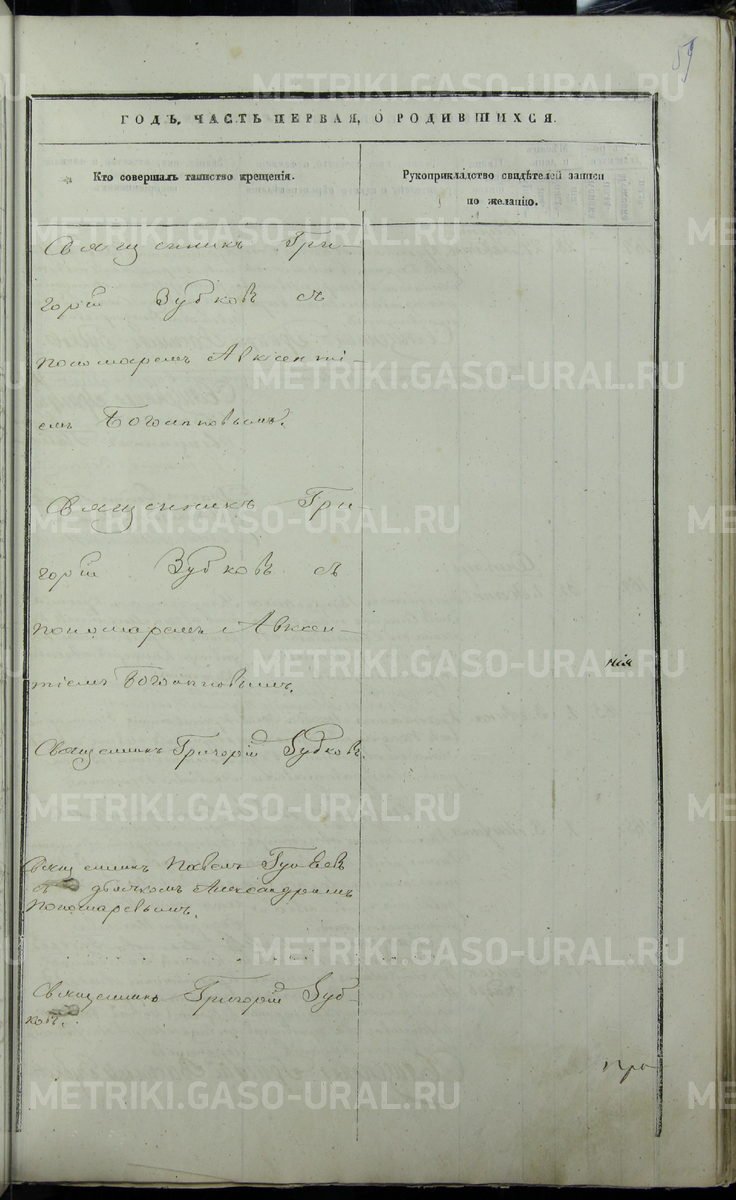 59
ГОДЪ, ЧАСТЬ ПЕРВАЯ, О РОДИВШИХСЯ.
Кто совершалъ таинство крещенія.
Рукоприкладство свидѣтелей записи
по желанію.
Священникъ Гри-
горій Зубковъ съ
пономаремъ Авксенті-
емъ
Священникъ Гри-
горій Зубковъ съ
пономаремъ Авксен-
тіемъ
нія
Священникъ Григорій Зубковъ.
Священникъ Павелъ
съ дьячкомъ Александромъ
Пономаревымъ.
Священникъ Григорій Зуб-
ковъ.
про
METRIKI.GASO-URAL.RU